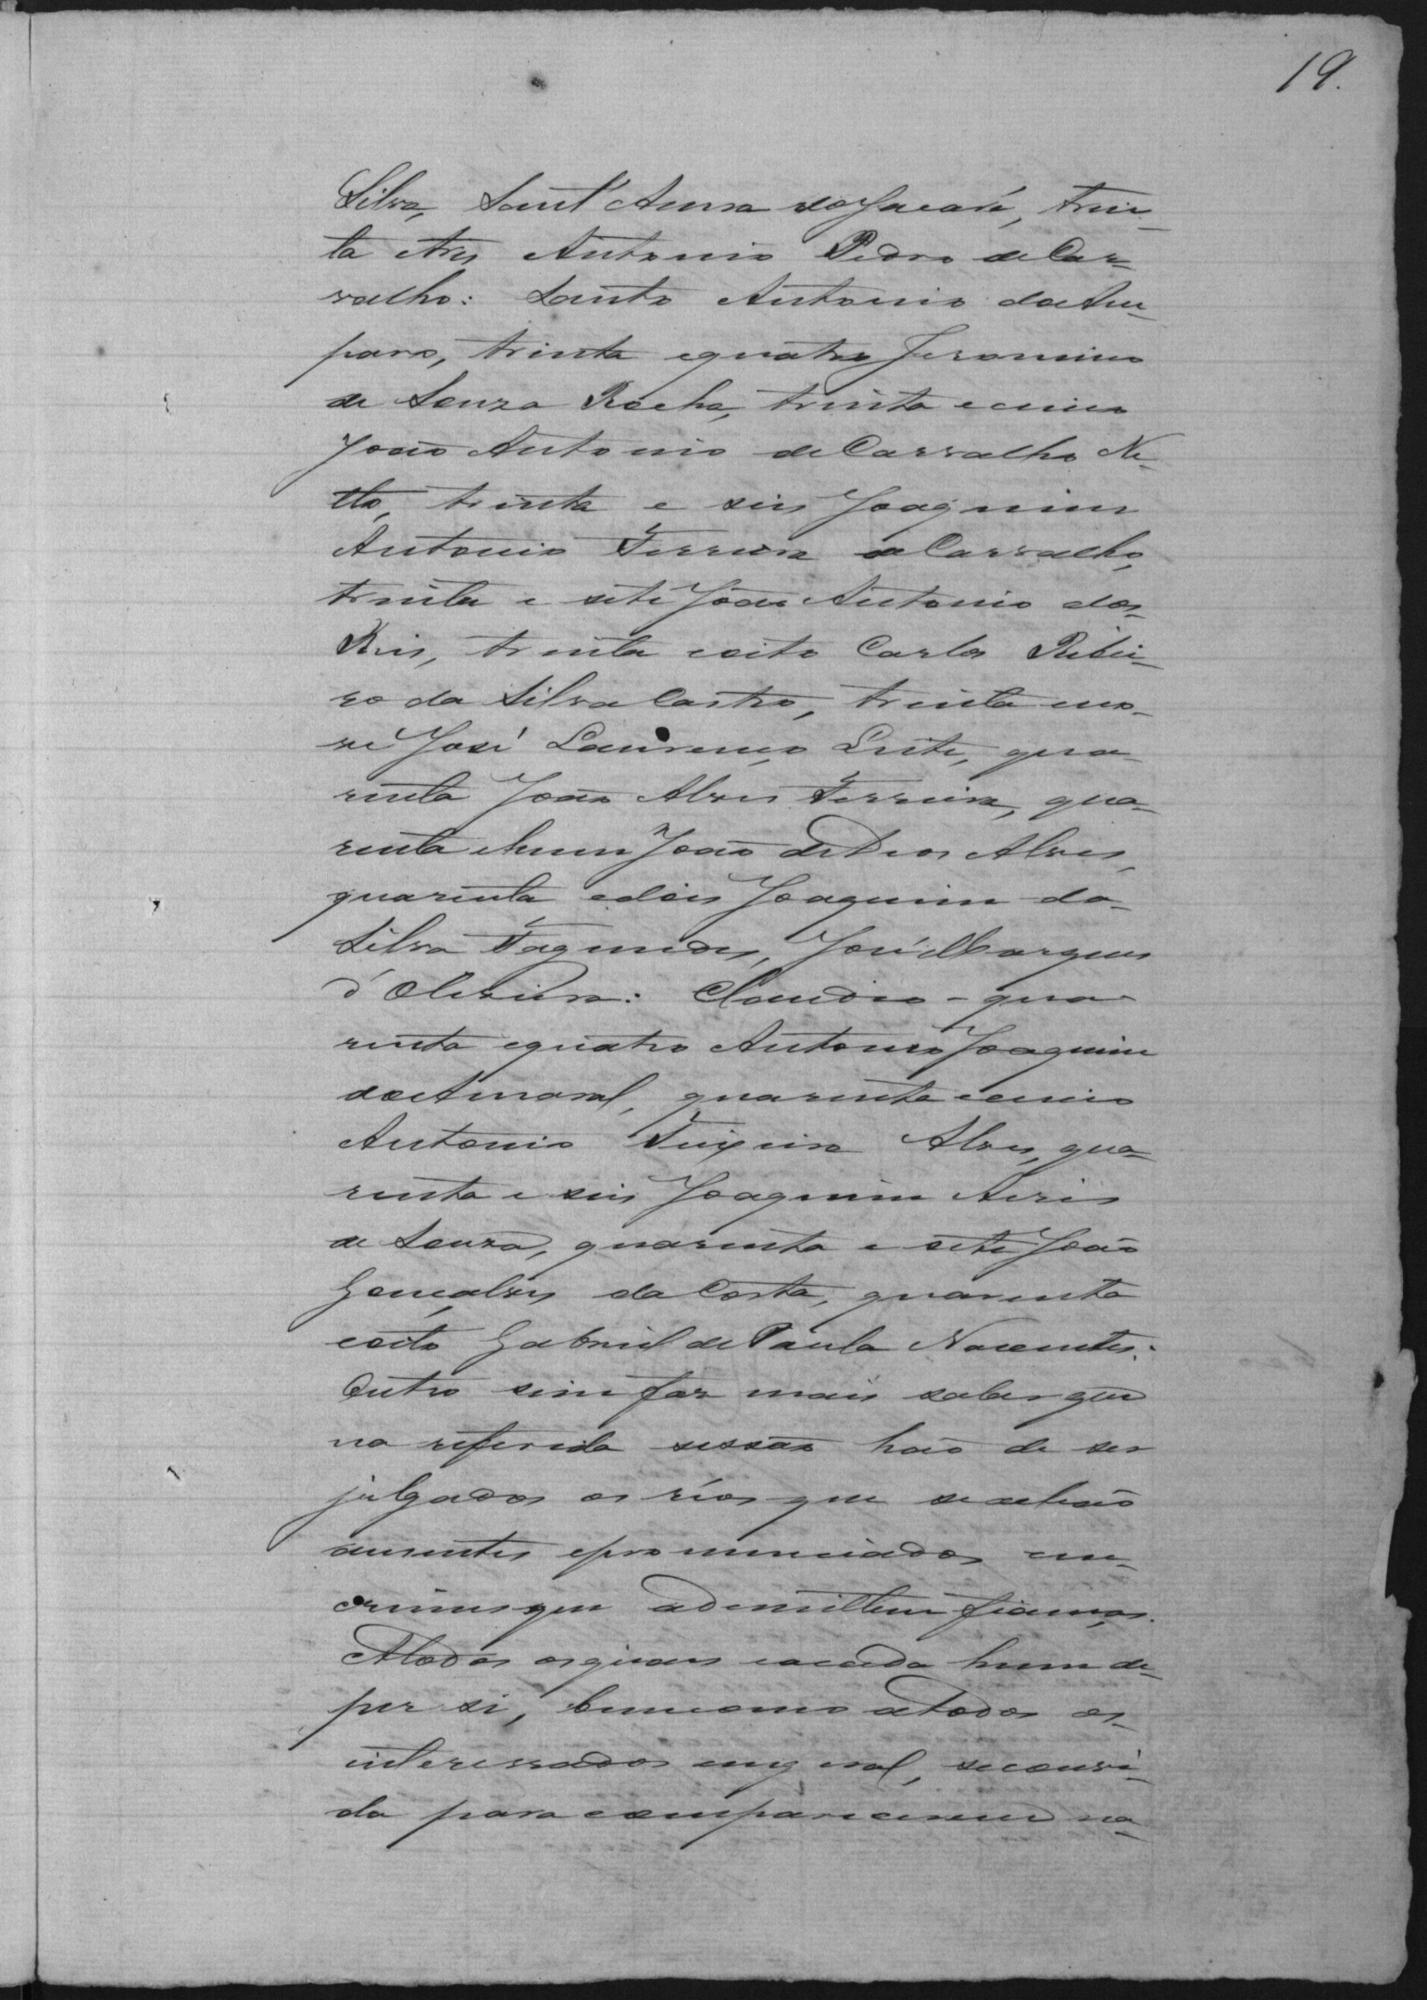 19.
Silva, Sant'Anna do Jacaré, trin-
ta etres Antonio Pedro de Car-
valho: Santo Antonio do Am-
paro, trinta equatro Jeronimo
de Souza Rocha, trinta ecinco
João Antonio de Carvalho Ne-
tto, trinta e seis Joaquim
Antonio Ferreira de Carvalho,
trinta e sete João Antonio dos
Reis, trinta eoito Carlos Ribei-
ro da Silva Castro, trinta eno-
ve José Lourenço Leite, qua-
renta João Alves Ferreira, qua-
renta ehum João de Deos Alves,
quarenta edois Joaquim da
Silva Fagundes, José Marques
d'Oliveira: Claudio - qua-
renta equatro Antonio Joaquim
do Amaral, quarenta ecinco
Antonio Teixeira Alves, qua-
renta e seis Joaquim Aires
de Souza, quarenta e sete João
Gonçalves da Costa, quarenta
eoito Gabriel de Paula Nacentes:
Outro sim faz mais saber que
na referida sessão hão de ser
julgados os réos que se achão
auzentes epronunciados em
crimes que admittem fiança.
Atodos os quaes eacada hum de
per si, bem como atodos os
interessados em geral, se convi-
da para comparecerem na